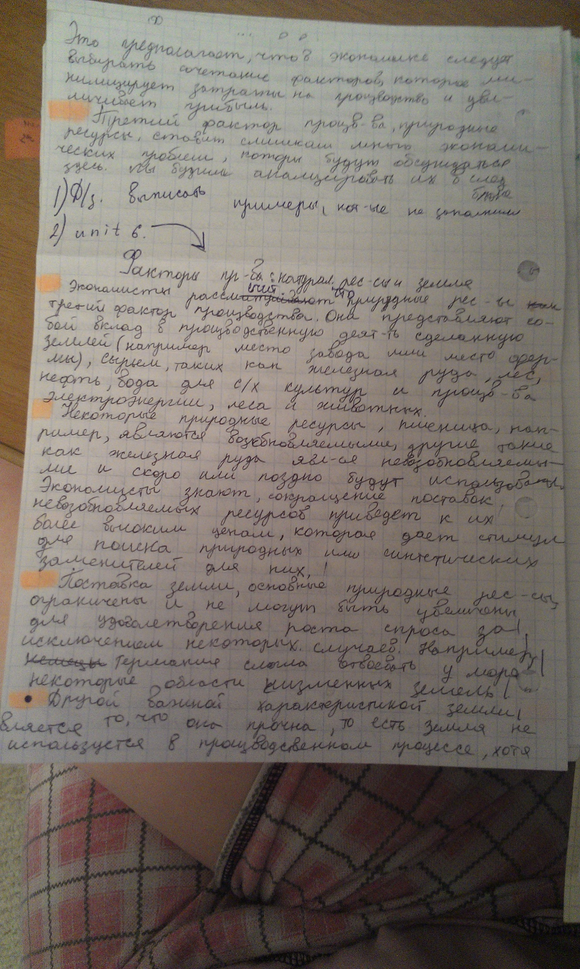 Это предполагает, что в экономике следует
выбирать сочетание факторов, которое ми-
нимизирует затраты на производство и уве-
личивает прибыль.
Третий фактор произв-ва, природные
ресурсы, ставит слишком много экономи-
ческих проблем, которы будут обсуждаться
здесь. Мы будем анализировать их в след
блоке
1) Д/з. выписать примеры, кот-ые не запомнили
2) unit 6.
Факторы пр-ва: натурал. рес-сы и земля
Экономисты рассматривают природные рес-сы как
третий фактор производства. Они представляют со-
бой вклад в производственную деят-ть сделанную
землей (например место завода или место фер-
мы), сырьем, таких как железная руда, лес,
нефть, вода для с/х культур и произв-ва
электроэнергии, леса и животных.
Некоторые природные ресурсы, пшеница, нап-
ример, являются возобновляемыми, другие такие
как железная руда явл-ся невозобновляемы-
ми и скоро или поздно будут использованы.
Экономисты знают, сокращение поставок
невозобновляемых ресурсов приведет к их
более высоким ценам, которая дает стимул
для поиска природных или синтетических
заменителей для них.
Поставка земли, основные природные рес-сы,
ограничены и не могут быть увеличены
для удовлетворения роста спроса за
исключением некоторых случаев. Например
Германия смогла отвоевать у моря
некоторые области низменных земель
• Другой важной характеристикой земли
является то, что она прочна, то есть земля не
используется в производственном процессе, хотя